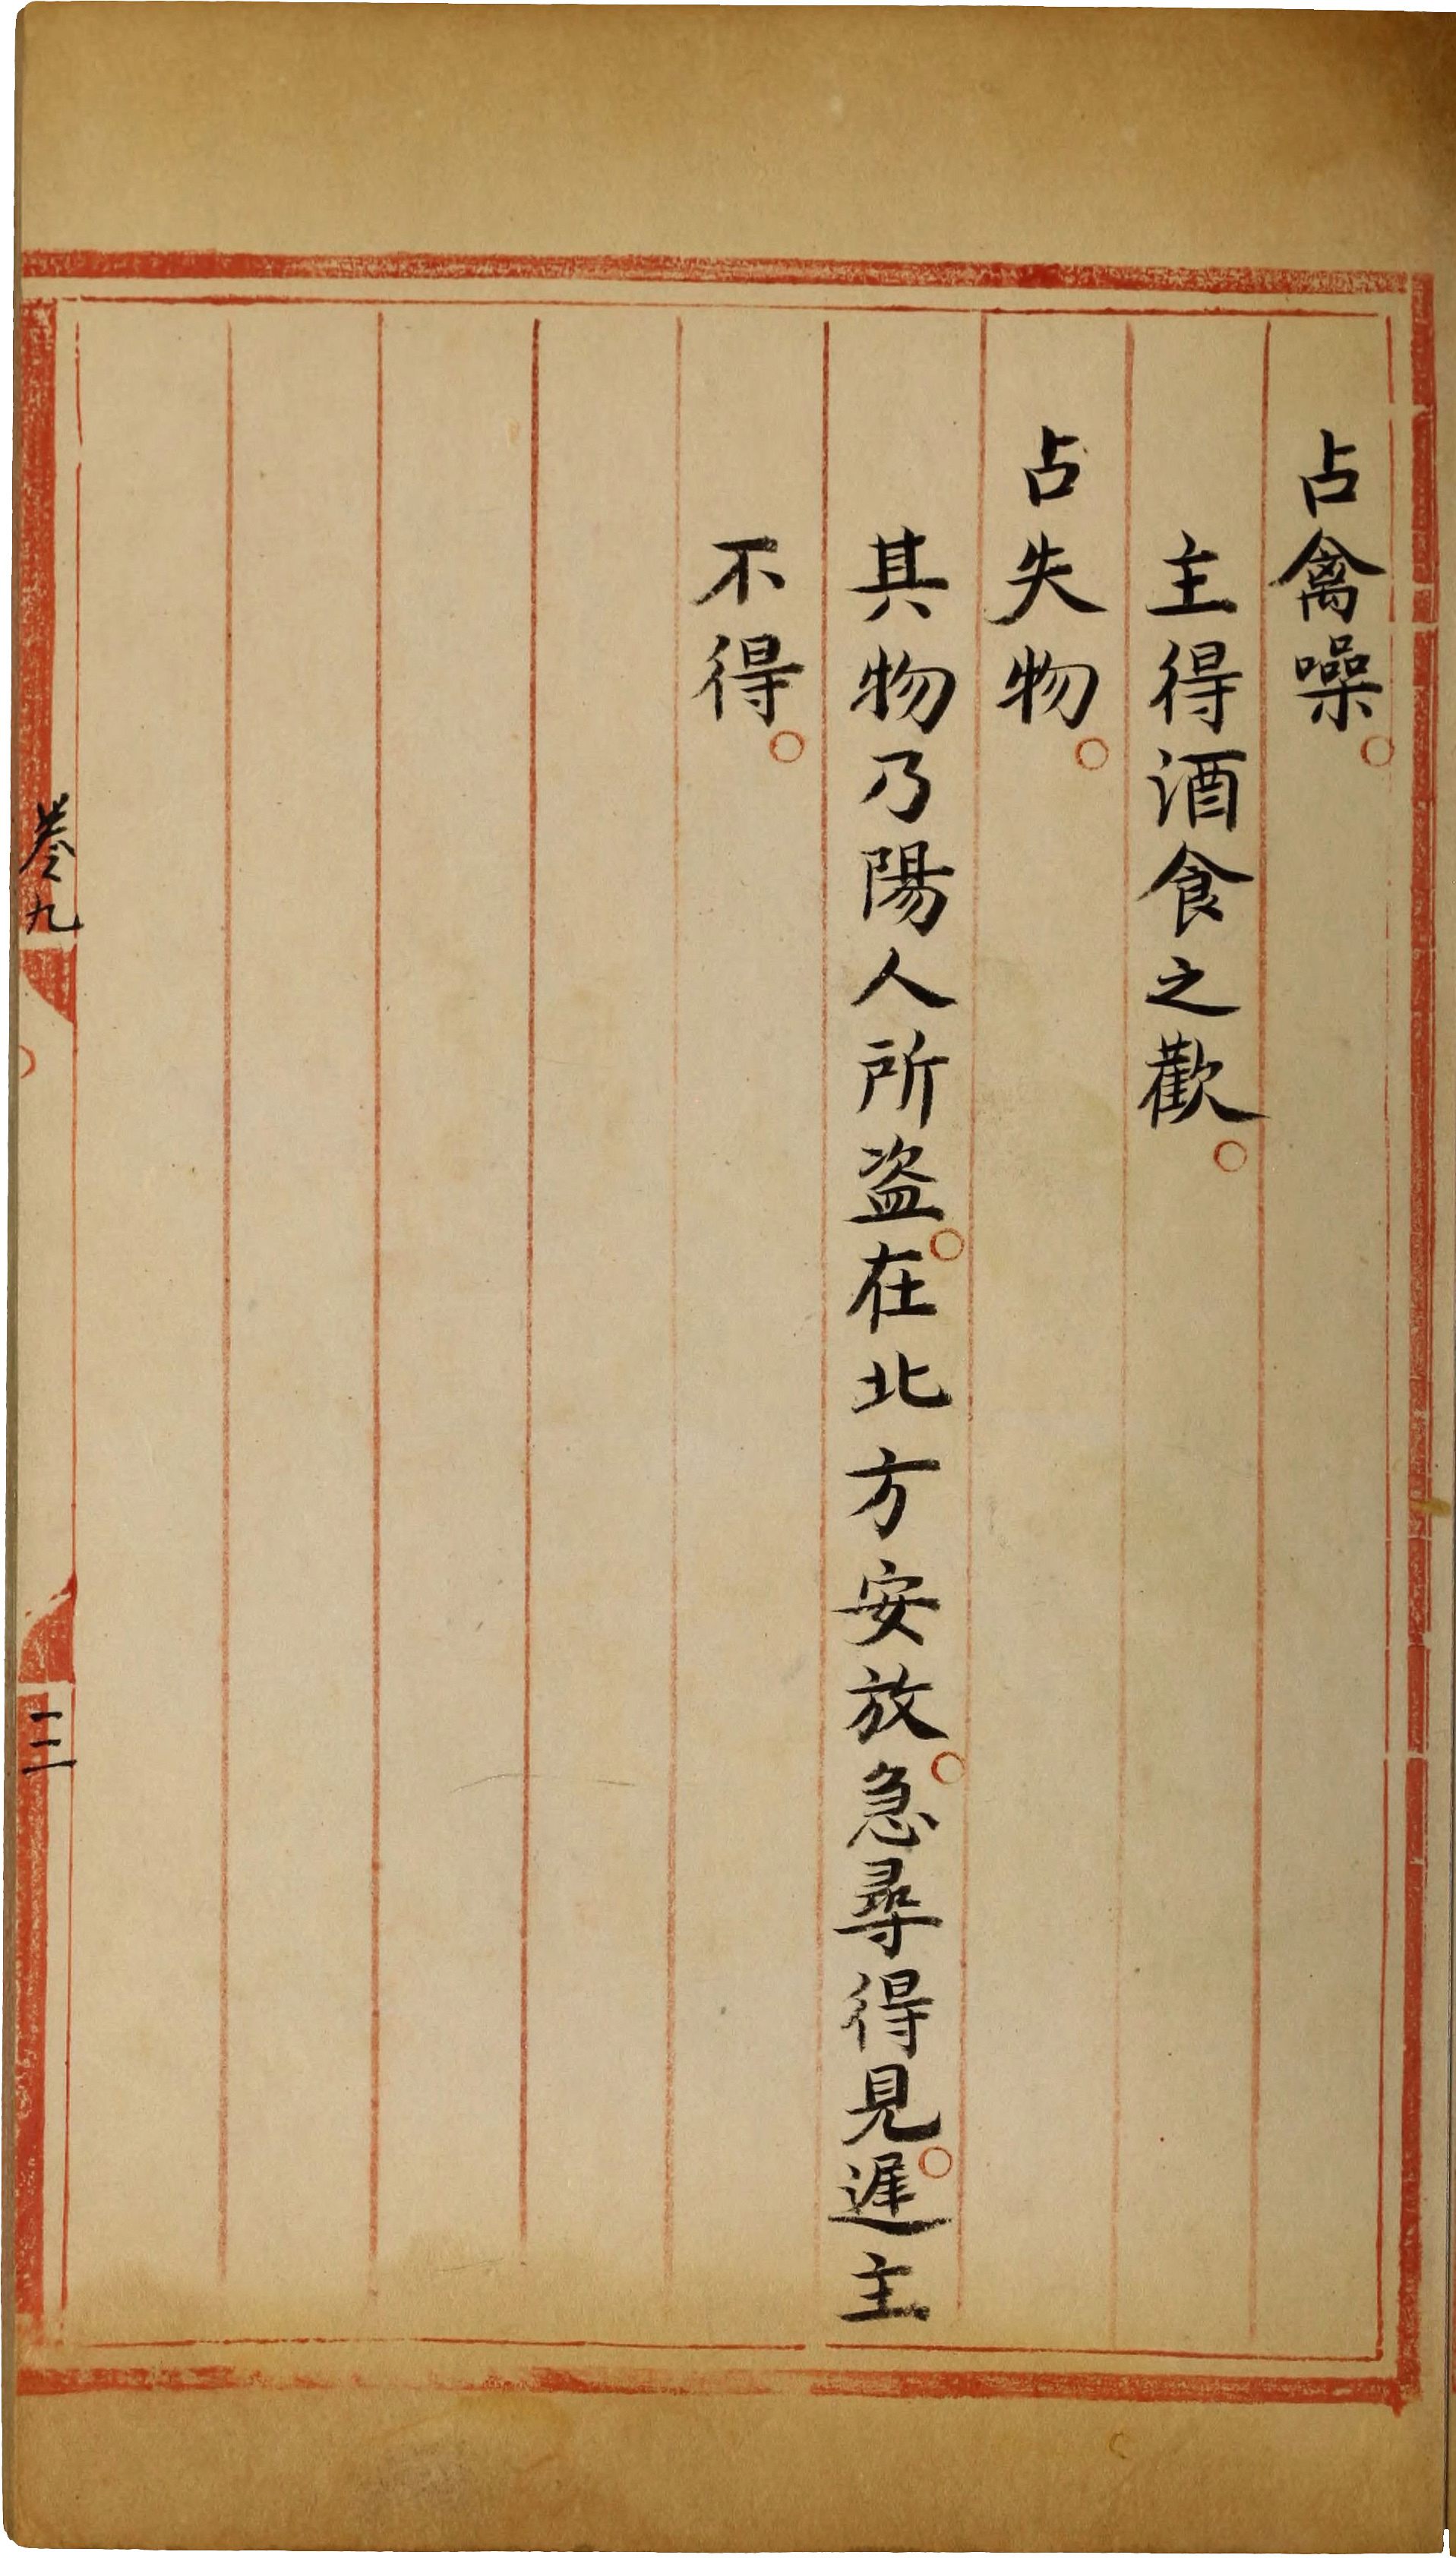 占禽噪。
主得酒食之歡。
占失物。
其物乃陽人所盗。在北方安放。急尋得見。遲主
不得。
卷九
三